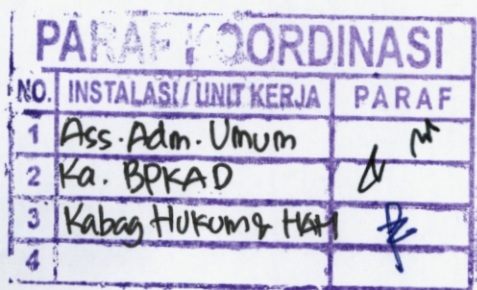 PARAF KOORDINASI
NO. INSTALASI / UNIT KERJA PARAF
1 Ass. Adm. Umum
2 Ka. BPKAD
3 Kabag Hukum & HAM
4